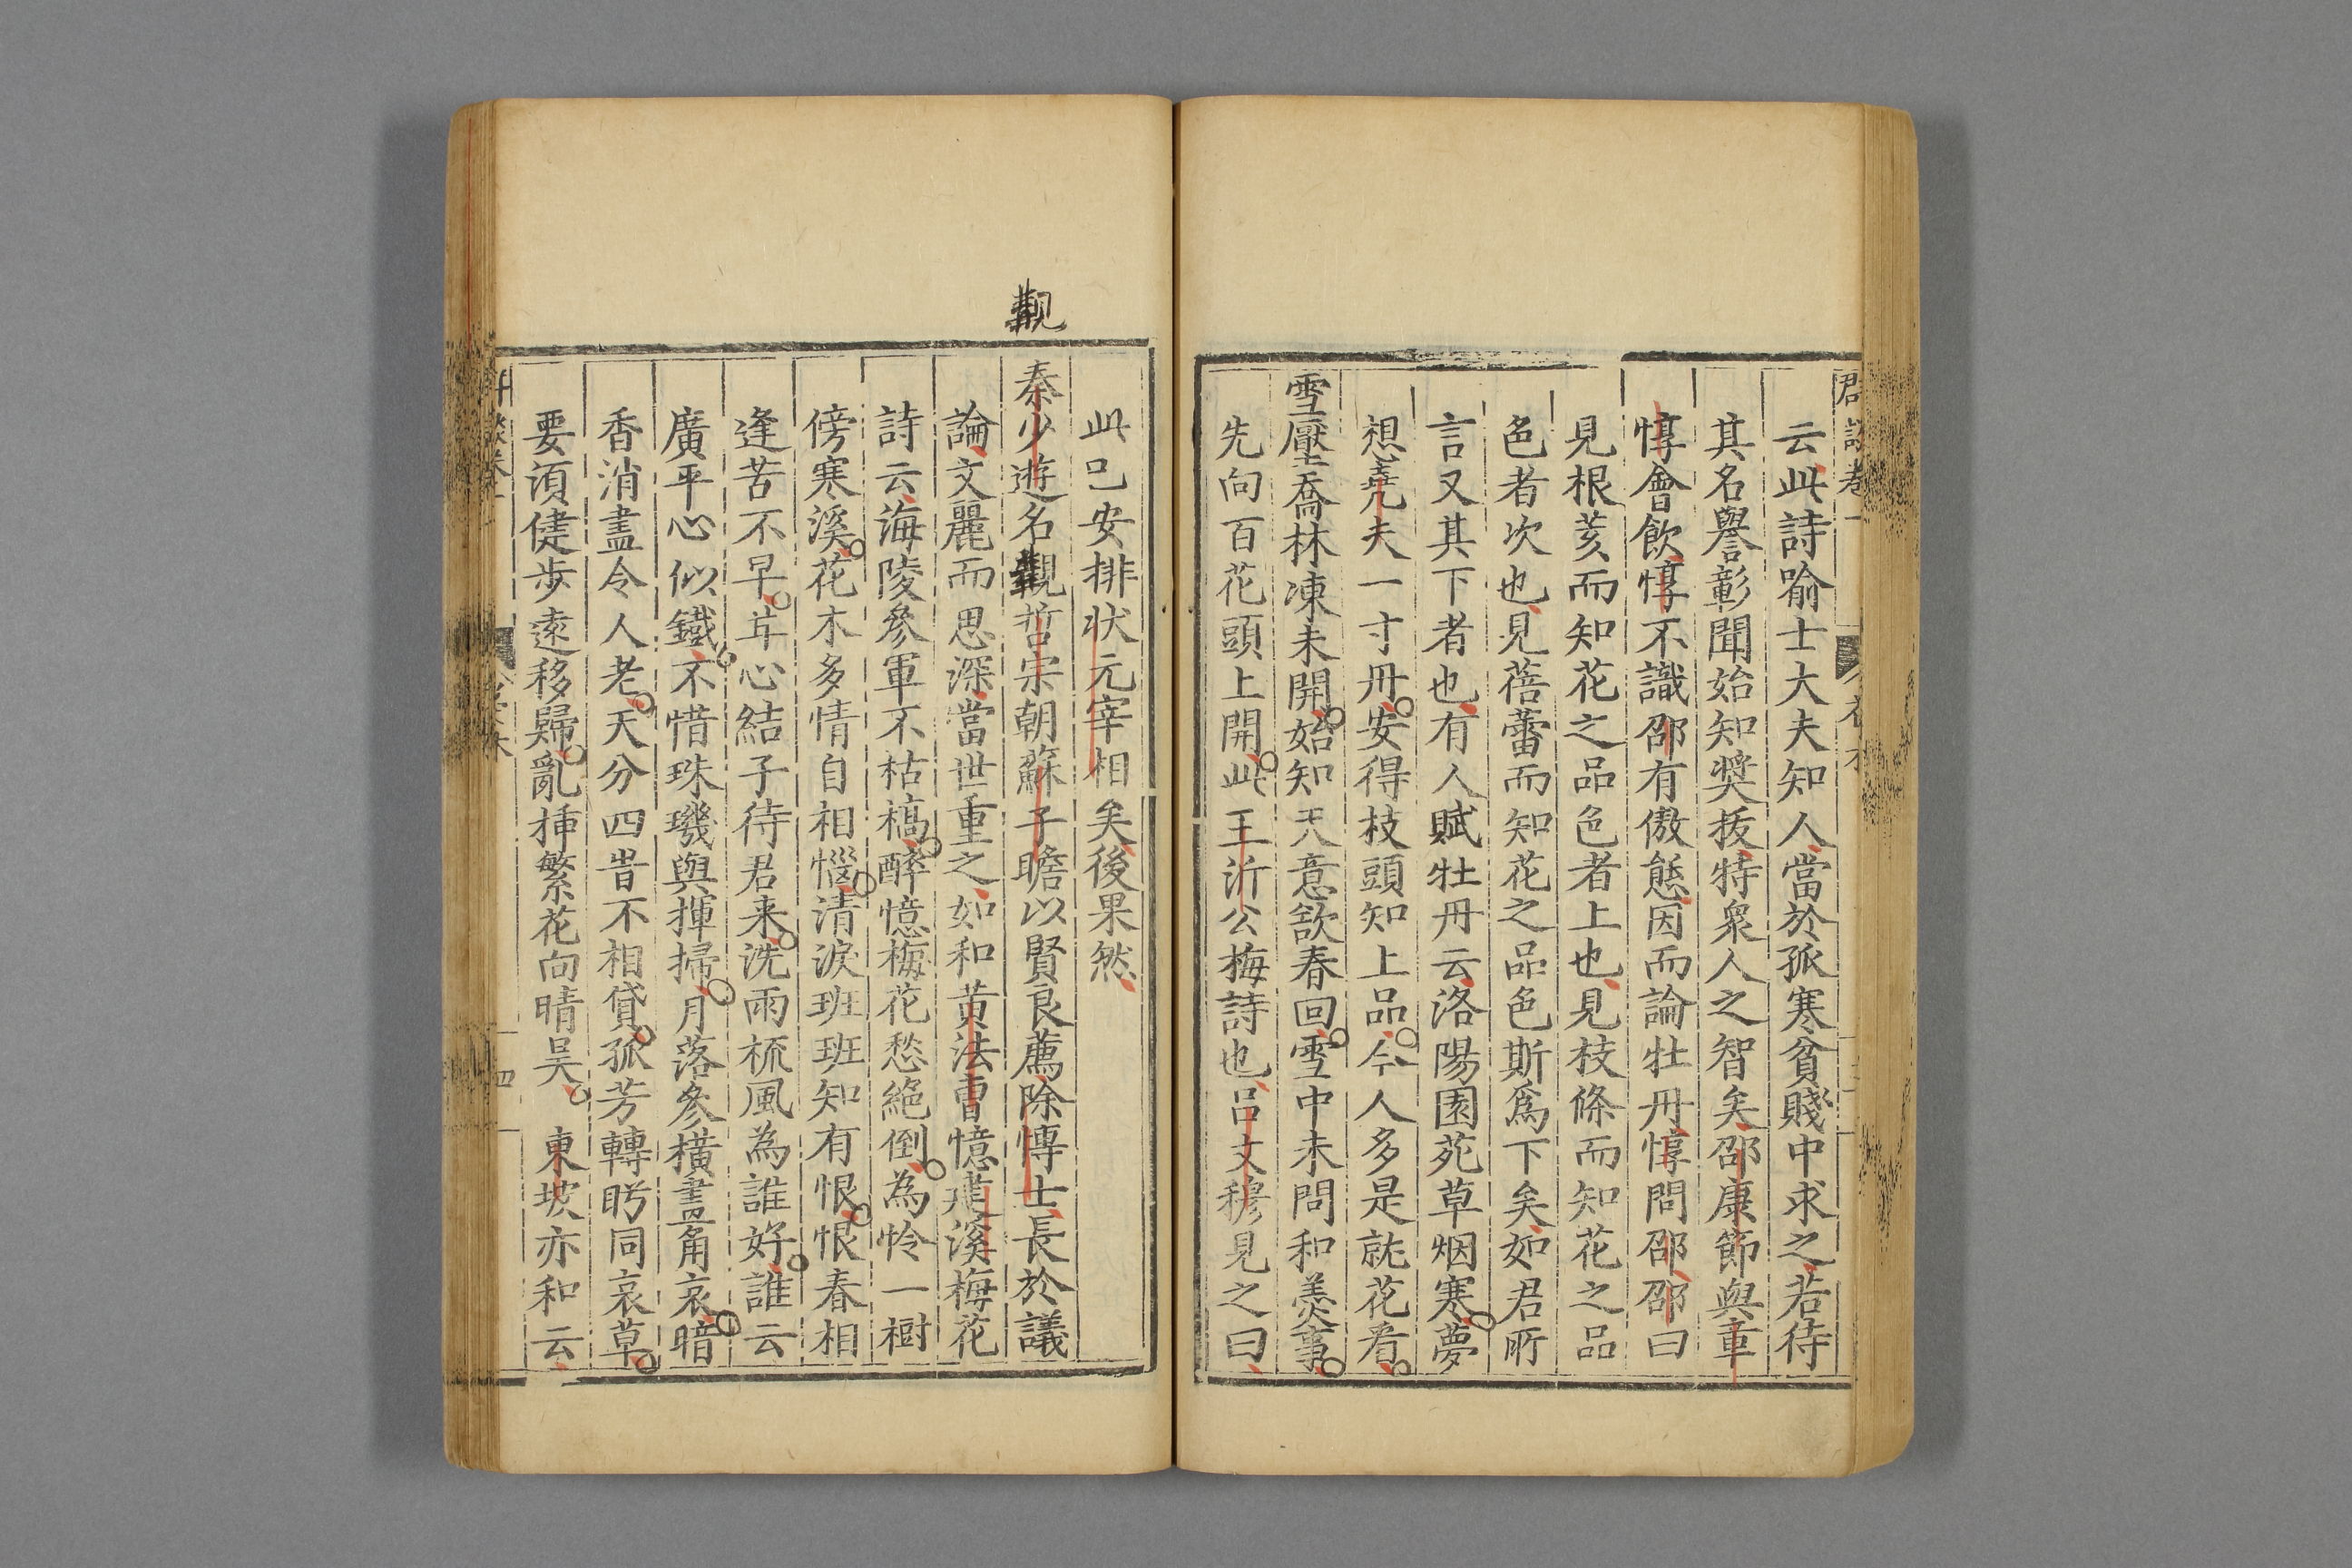 云此詩喻士大夫知人當於孤寒貧賤中求之若待
其名譽彰聞始知奬拔特衆人之智矣邵康節與章
惇會飲惇不識邵有傲態因而論牡丹惇問邵邵曰
見根荄而知花之品色者上也見枝條而知花之品
色者次也見蓓蕾而知花之品色斯爲下矣如君所
言又其下者也有人賦牡丹云洛陽園苑草烟寒夢
想堯夫一寸丹安得枝頭知上品今人多是就花看
雪壓喬林凍未開始知天意欲春回雪中未問和羹事
先向百花頭上開此王沂公梅詩也呂文穆見之曰
觀
此已安排状元宰相矣後果然
秦少遊名觀哲宗朝蘇子瞻以賢良薦除博士長於議
論文麗而思深當世重之如和黄法曹憶建溪梅花
詩云海陵參軍不枯槁醉憶梅花愁絕倒為怜一樹
傍寒溪花木多情自相惱清淚班班知有恨恨春相
逢苦不早甘心結子待君来洗雨梳風為誰好誰云
廣平心似鐵不惜珠璣與揮掃月落參橫畫角哀暗
香消盡令人老天分四旹不相貸孤芳轉盻同哀草
要須健步遠移歸亂揷繁花向晴昊　東坡亦和云
四